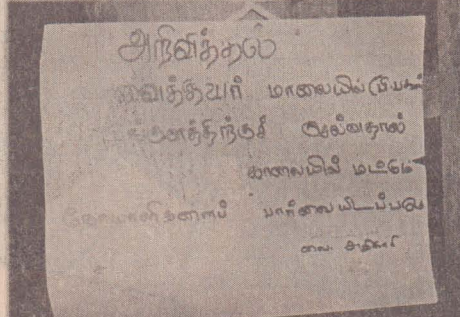 அறிவித்தல்
வைத்தியர் மாலையில்
செல்வதால்
காலையில் மட்டுமே
நோயாளிகளைப் பார்வையிடப்படும்
வை. அதிகாரி